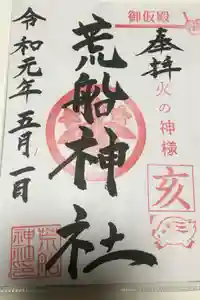 御仮殿
奉拝
火の神様
亥
荒船神社
令和元年五月一日